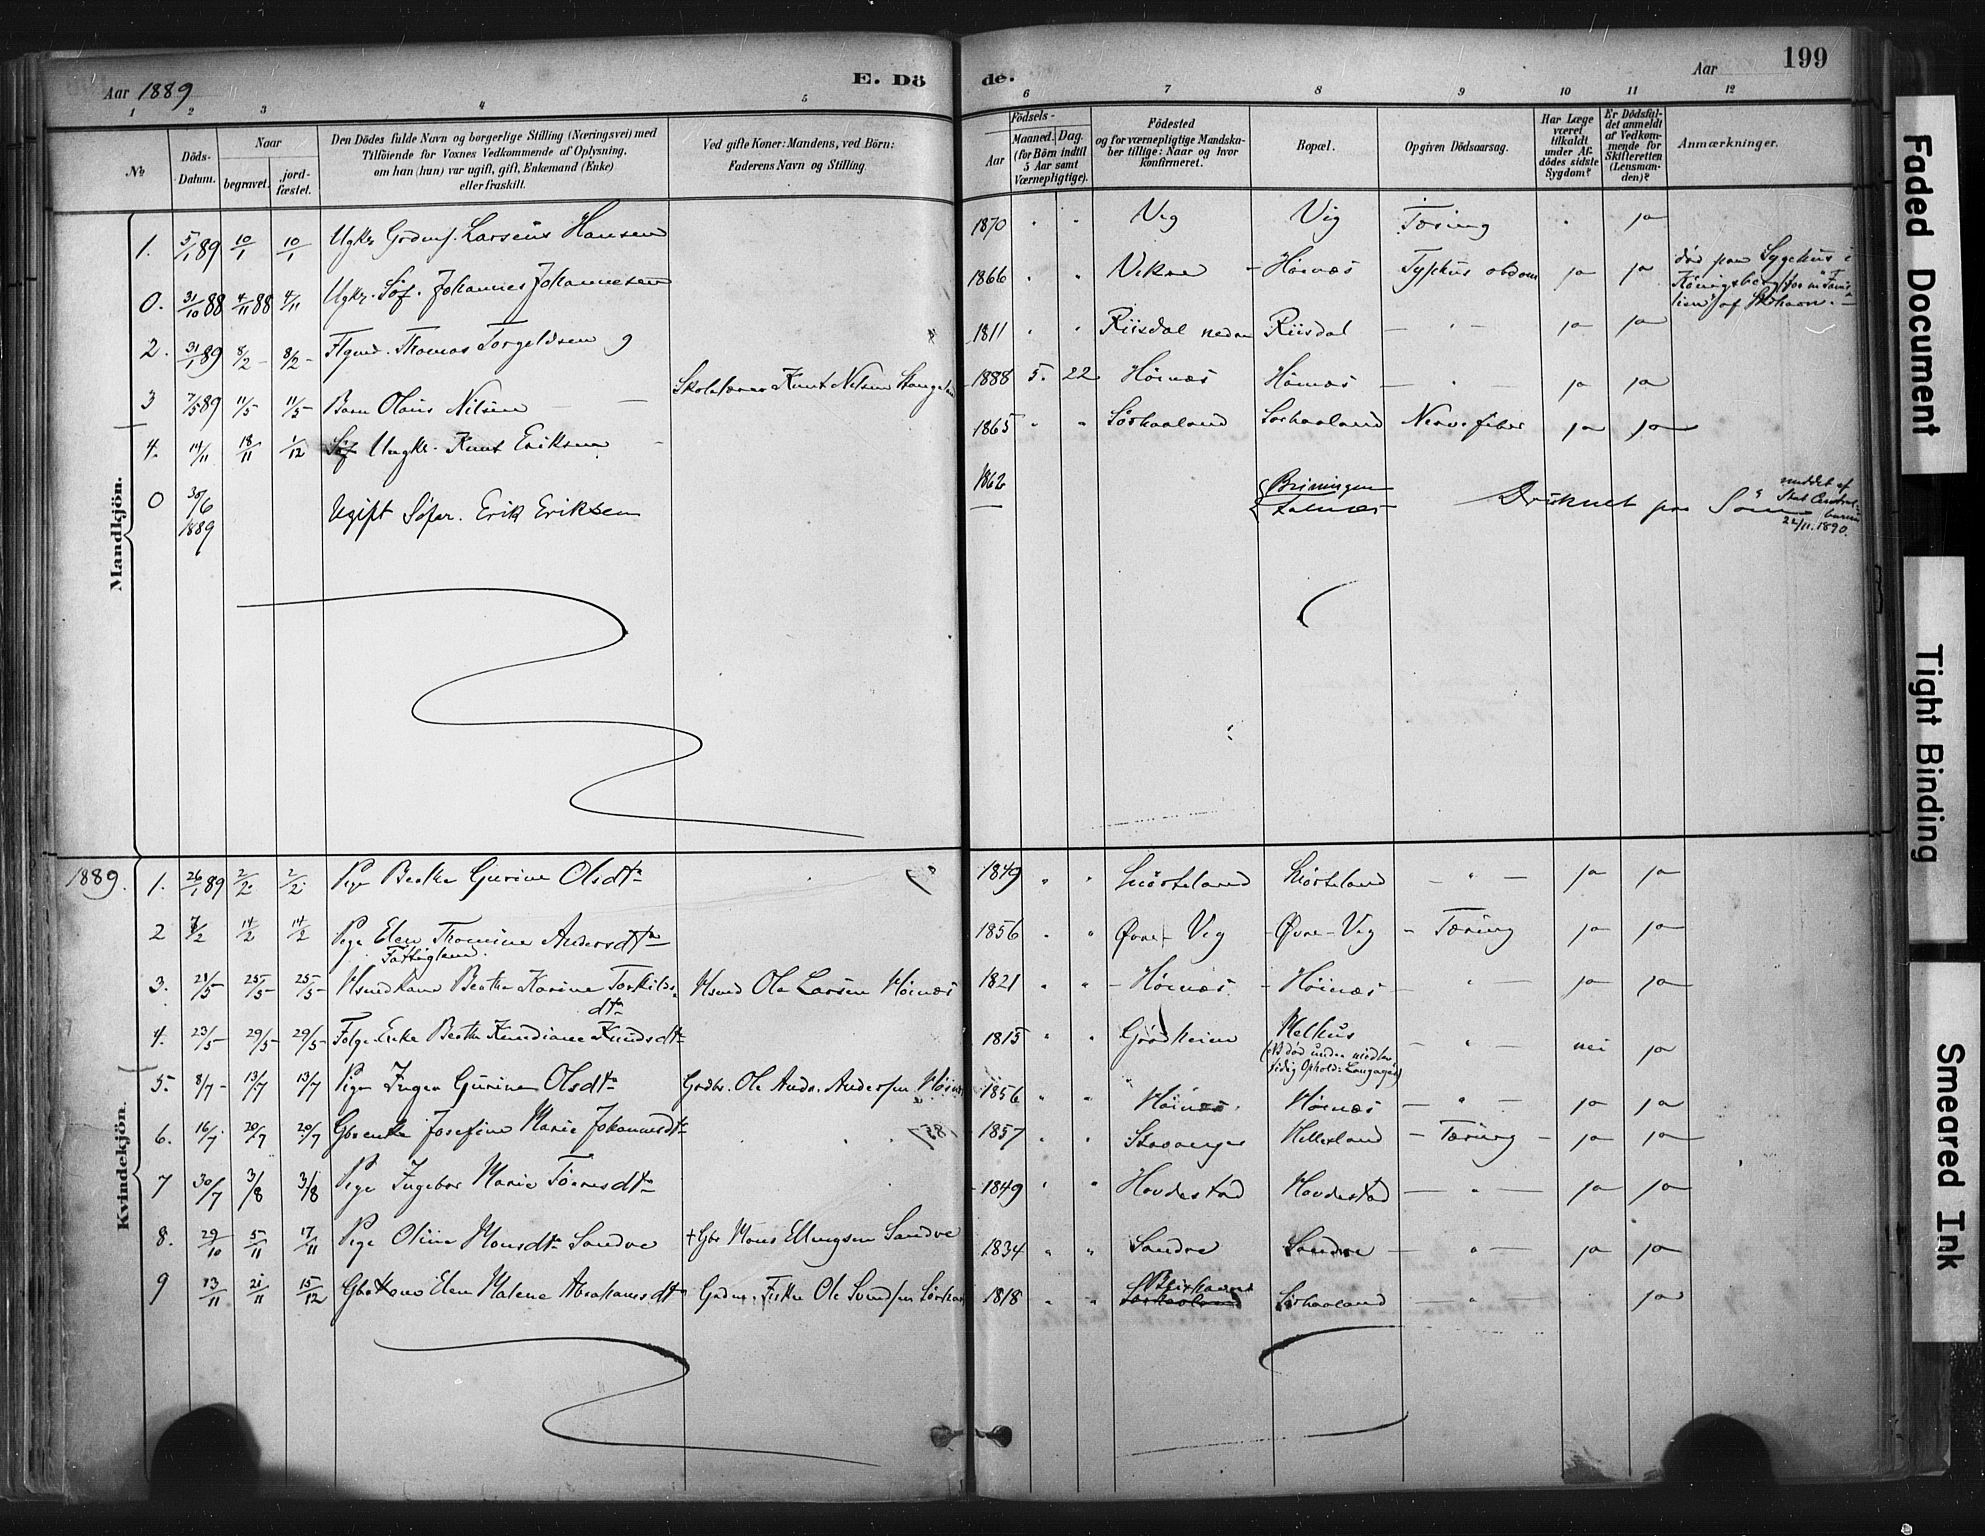 Aar 1889 E. Dö de. Aar 199
1 2 3 4 5 6 7 8 9 10 11 12
№ Döds-Datum. Naar begravet. jord-fæstet. Den Dödes fulde Navn og borgerlige Stilling (Næringsvei) med Tilföiende for Voxnes Vedkommende af Oplysning, om han (hun) var ugift, gift, Enkemand (Enke) eller fraskilt. Ved gifte Koner: Mandens, ved Börn: Faderens Navn og Stilling. Födsels- Aar Maaned. Dag. (for Börn indtil 5 Aar samt Værnepligtige). Födested og for værnepligtige Mandskaber tillige: Naar og hvor konfirmeret. Bopæl. Opgiven Dödsaarsag. Har Læge været tilkaldt under Afdödes sidste Sygdom? Er Dödsfaldet anmeldt af Vedkommende for Skifteretten (Lensmanden)? Anmærkninger.
Mandkjön.
1. 5/1 89 10/1 10/1 Ugkr. Larsens Hansen 1870 " " Vig Vig Tæring " ja
0. 31/10 88 4/11 88 4/11 Ugkr. Söf. Johannes Johannesen 1866 " " Vikre - Höinæs Typhus abdom ja ja død paa Sygehus i
2. 31/1 89 8/2 - 8/2 - Flgmd. Thomas Torgeldsen 1811 " " Riisdal nedre Riisdal — " — ja ja
3 7/5 89 11/5 11/5 Barn Olaus Nilsen — — Skolelærer Knut Nilsen 1888 5. 22 Höinæs Höinæs — " — ja ja
4. 14/11 18/11 1/12 Söf Ungkr. Knut Eriksen 1865 " " Sörhaaland Sörhaaland Nervefeber ja ja
0 30/6 1889 Ugift Söfar. Erik Eriksen 1862 — Druknet paa Söen meddelt af
22/11.1890.
Kvindekjön.
1889. 1. 26/1 89 2/2 2/2 Pige Berthe Gurine Olsdtr 1849 " " — " — ja ja
2 7/2 14/2 14/2 Pige Elen Thomine Andersdtr 1856 " " Øvre-Vig -Øvre-Vig - Tæring ja ja
Fattiglem.
3. 21/5 25/5 25/5 Berthe Karine Torkilds- Hsmd Ole Larsen Höinæs 1821 " " - Höinæs - Höinæs — " — ja ja
dtr
4. 23/5 29/5 29/5 Folge-Enke Berthe Knudsdtr 1815 " " Melhus — " — nei ja
5. 8/7 - 13/7 13/7 Pige Inger Gurine Olsdtr Gaardbr. Ole Andr. Andersen Höinæs 1856 " " Höinæs. Höinæs — " — ja ja
6. 16/7 20/7 20/7 Gbrenke Josefine Marie Johannesdtr 1857 1857 " " Stavanger Helleland - Tæring - ja ja
7 30/7 3/8 3/8 Pige Ingebor Marie Tönnesdtr - 1849 " " Hovdestad Hovdestad — " — ja ja
8. 29/10 5/11 17/11 Pige Oline Monsdtr Sandve + Gbr Mons Ellingsen Sandve 1834 " " Sandve Sandve — " — ja ja
9 13/11 21/11 15/12 Gbrkone Elen Malene Abrahamsdtr Fisker Ole Svendsen 1818 " " Sörhaaland Sörhaaland — " — ja
Faded Document
Tight Binding
Smeared Ink